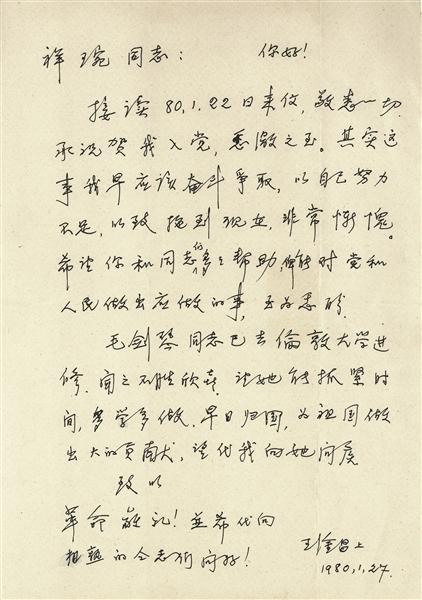 祥琬同志： 你好！
接读80.1.22日来信，敬悉一切
承祝贺我入党，感激之至。其实这
事我早应该奋斗争取，以自己努力
不足，以致拖到现在，非常惭愧。
希望你和同志们多多帮助，能对党和
人民做出应做的事，至为感盼
毛剑琴同志已去倫敦大学进
修，闻之不胜欣喜，望她能抓紧时
间，多学多做，早日归国，为祖国做
出大的贡献，望代我向她问候
致以
革命敬礼！並希代向
相熟的同志们问好！
王淦昌上
1980.1.27.